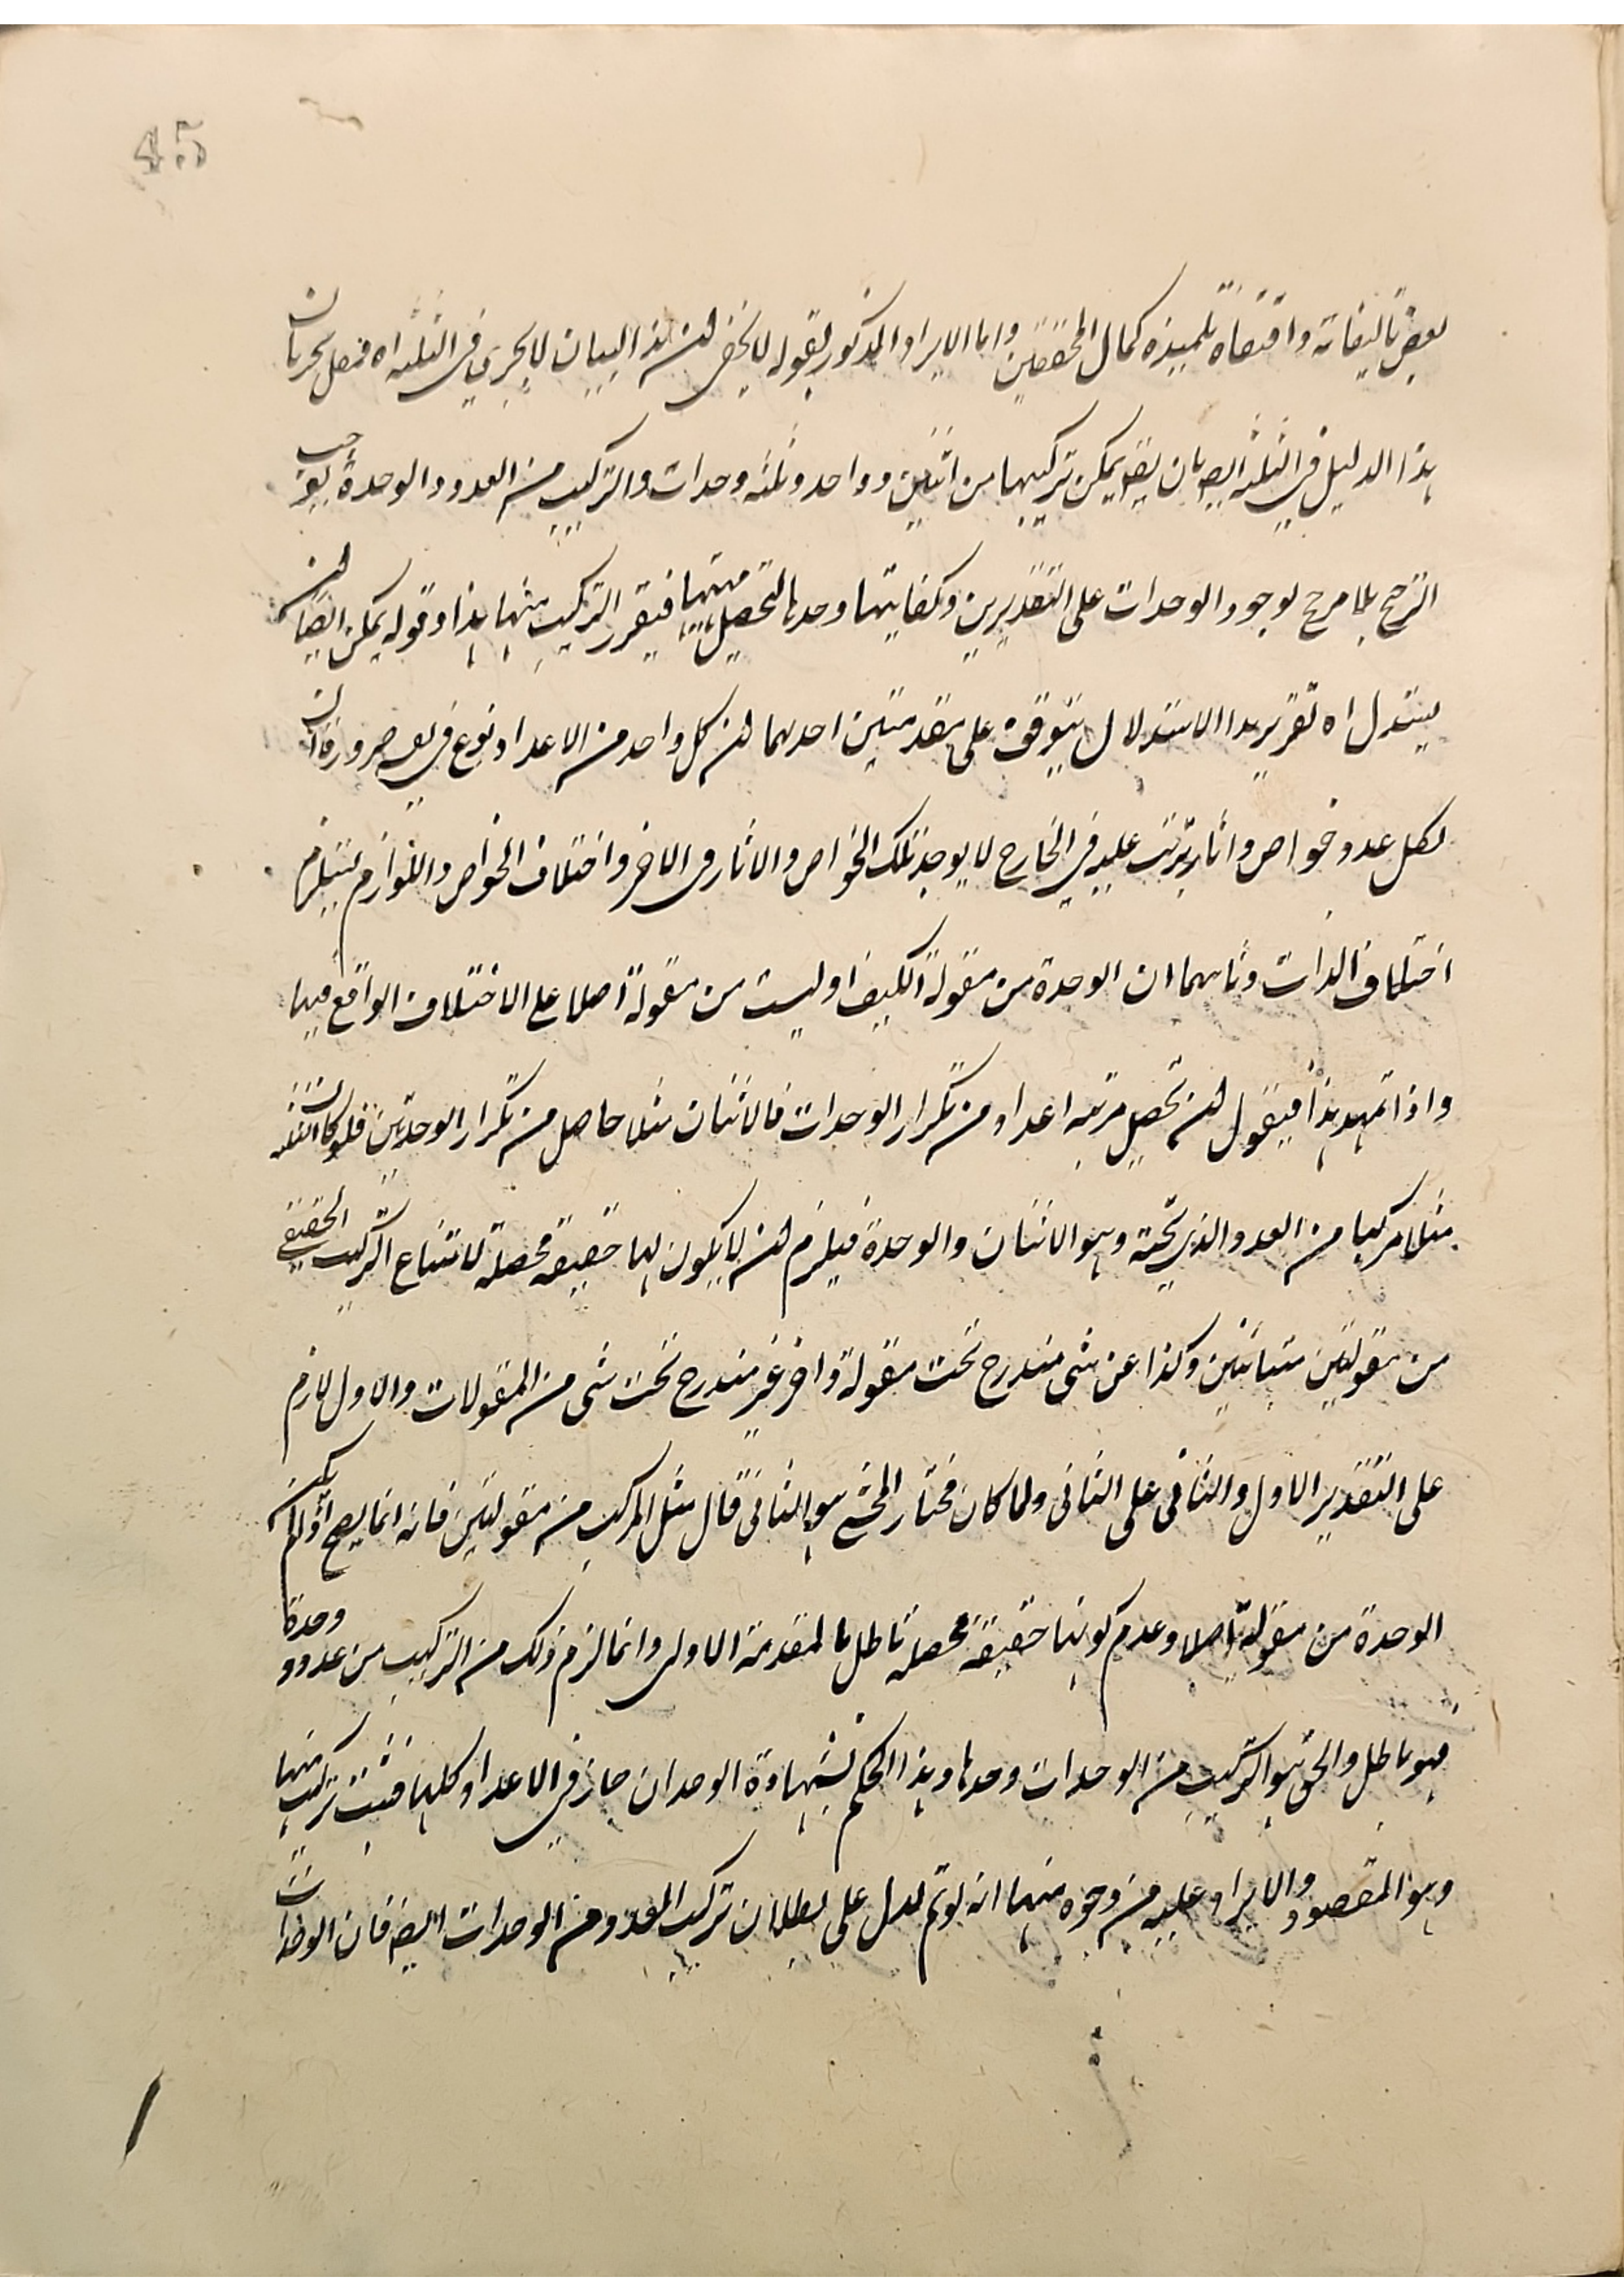 45
بعض تاليفاته واقتفاه تلميذه كمال المحققين واما الايراد المذكور بقوله لا يخفى ان هذا البيان لا يجرى فى الثلثة اه فنعمل بجريان
هذا الدليل فى الثلثة ايضا بان يقع يمكن تركيبها من اثنين وواحد وثلثة وحدات والتركيب من العدد والوحدة يوجب
الترجيح بلا مرجح لوجود الوحدات على التقديرين وكفايتها وحدها لتحصيل مهيتها فيتقرر التركيب منها هذا وقوله يمكن ايضا ان
يستدل اه تقرير هذا الاستدلال يتوقف على مقدمتين احدهما ان كل واحد من الاعداد نوع ضرورة ان
لكل عدد خواص واثار يترتب عليه فى الخارج لا يوجد تلك الخواص والاثار فى الاخر واختلاف الخواص واللوازم يستلزم
اختلاف الذات وثانيهما ان الوحدة من مقولة الكيف او ليست من مقولة اصلا على الاختلاف الواقع فيها
واذا تمهد هذا فيقول ان تحصل مرتبة اعداد من تكرار الوحدات فالاثنان مثلا حاصل من تكرار الوحدتين فلو كان الثلثة
مثلا مركبا من العدد الذى تحته وهو الاثنان والوحدة فيلزم ان لا يكون لها حقيقة محصلة لامتناع التركيب الحقيقى
من مقولتين متبائنتين وكذا عن شى مندرج تحت مقولة واخر غير مندرج تحت شى من المقولات والاول لازم
على التقدير الاول والثانى على الثانى ولما كان مختار المحشى هو الثانى قال مثل المركب من مقولتين فانه انما يصح اذا لم يكن
الوحدة من مقولة اصلا وعدم كونها حقيقة محصلة باطل بالمقدمة الاولى وانما لزم ذلك من التركيب من عدد ووحدة
فهو باطل والحق هو التركيب من الوحدات وحدها وهذا الحكم بشهادة الوجدان جار فى الاعداد كلها فثبت تركيبها منها
وهو المقصود والايراد عليه من وجوه منها انه لو تم لدل على بطلان تركب العدد من الوحدات ايضا فان الوحدات